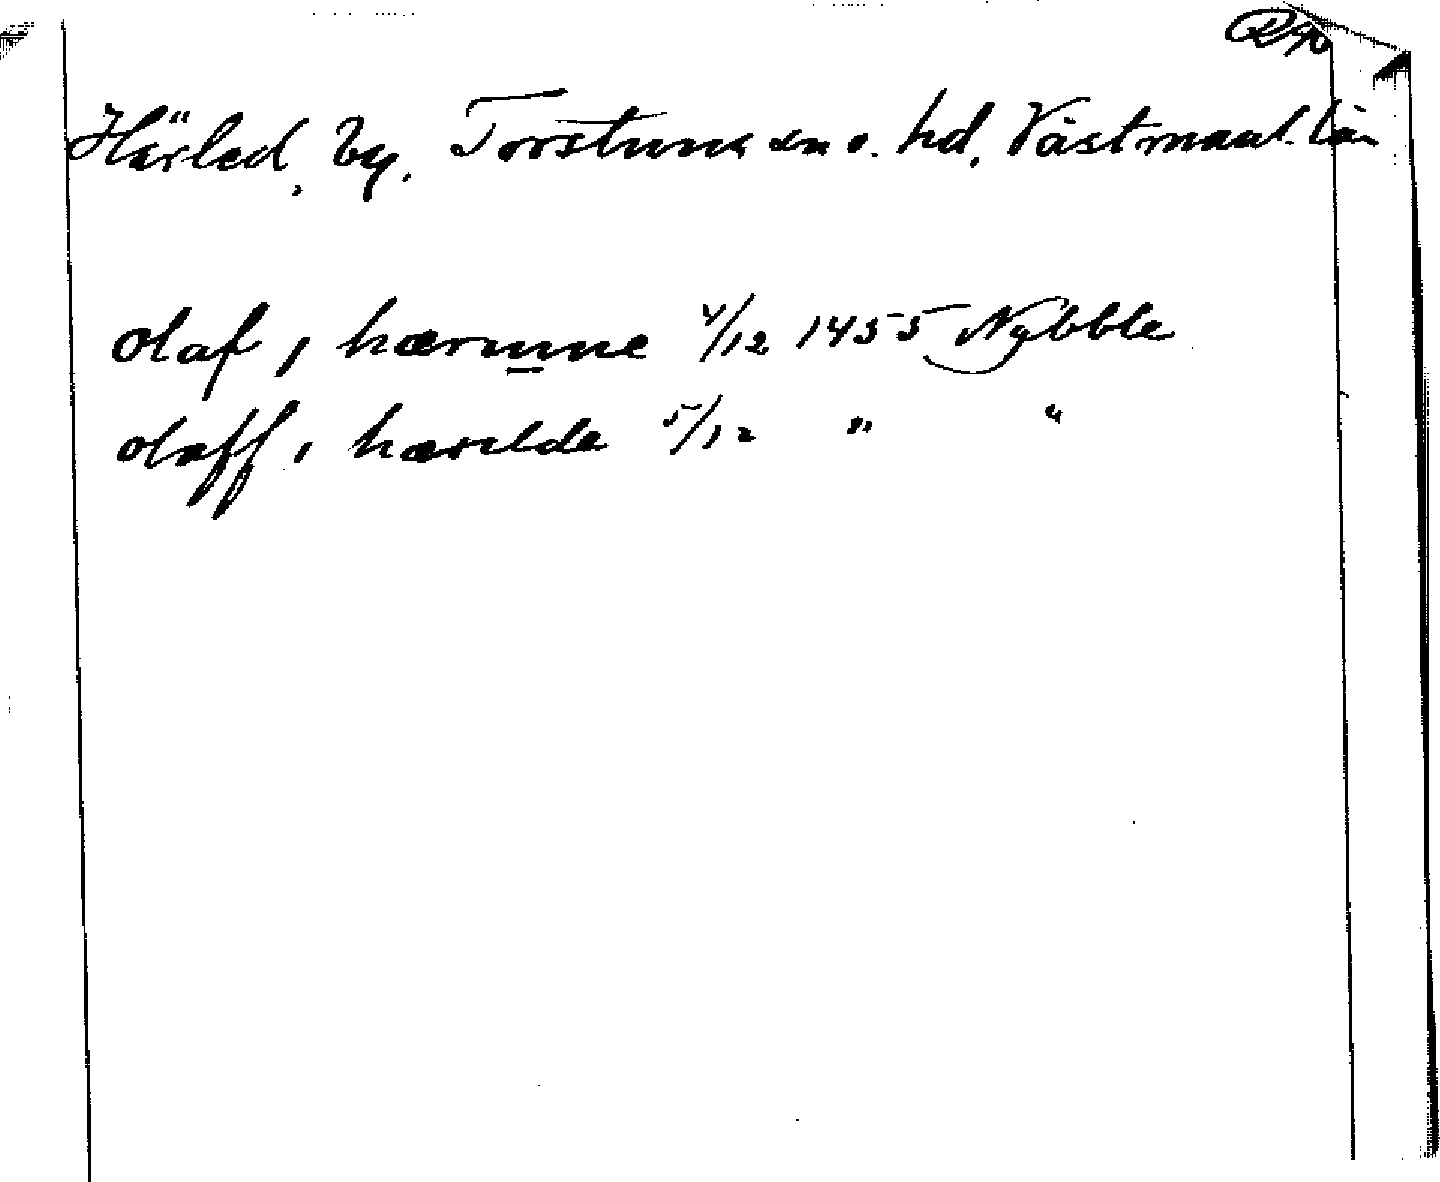 Härled, by. Torstuna sn o. hd, Västmanl. län
olaf, i hærunne 4/12 1455 Nybble
olaff, i hærelde 5/12 " "